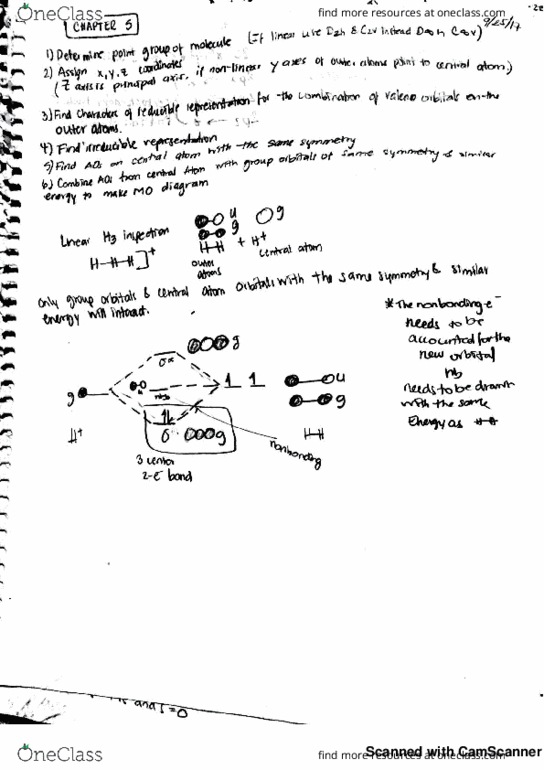 OneClass
find more resources at oneclass.com
9/25/17
CHAPTER 5
1) Determine point group of molecule (If linear use D2h & C2v instead D∞h C∞v)
2) Assign x, y, z coordinates
(z axis is principal axis. if non-linear y axes of outer atoms point to central atom)
3) Find characters of reducible representation for the combination of valence orbitals on the
outer atoms.
4) Find irreducible representation
5) Find AOs on central atom with the same symmetry
6) Combine AOs from central atom with group orbitals of same symmetry & similar
energy to make MO diagram
Linear H3 inspection
H-H-H]+
u
g
H-H
outer
atoms
+ H+
g
central atom
only group orbitals & central atom orbitals with the same symmetry & similar
energy will interact.
* The nonbonding e-
needs to be
accounted for the
new orbital
nb
needs to be drawn
with the same
Energy as H-H
g
σ*
g
u
nb
1 1
u
g
H+
σ
g
H-H
nonbonding
3 center
2-e- bond
and l = 0
OneClass
find more resources at oneclass.com
Scanned with CamScanner